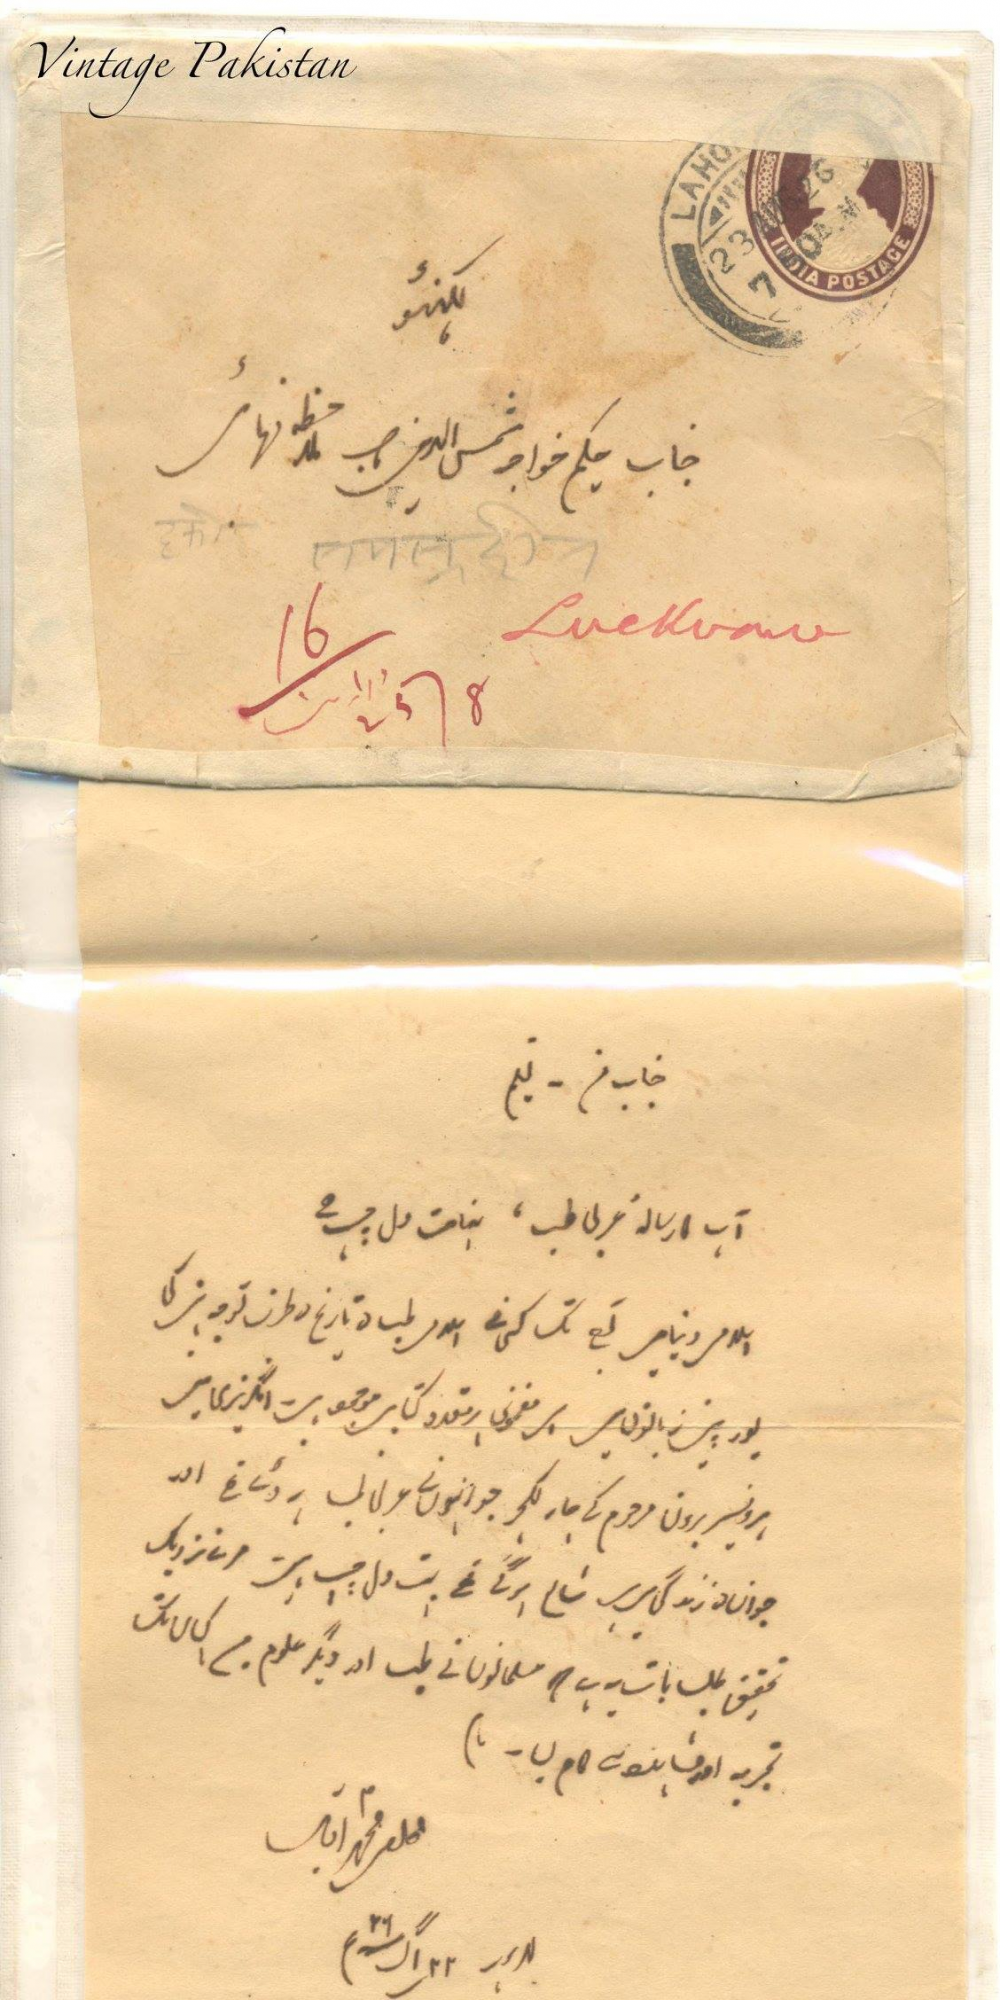 Vintage Pakistan
LAHORE
23 AUG 26
7
INDIA POSTAGE
لکھنؤ
جناب حکیم خواجہ شمس الدین صاحب
Lucknow
16
25/8
جناب من - تسلیم
آپ کا رسالہ عربی طب، نہایت دل چسپ ہے
اسلامی دنیا میں آج تک کسی نے اسلامی طب کی تاریخ کی طرف توجہ نہیں کی
یورپین زبانوں میں اس مضمون پر متعدد کتابیں موجود ہیں انگریزی میں
پروفیسر برون مرحوم کے چار لکچر جو انہوں نے عربی طب پر دئے تھے اور
جو ان کی زندگی ہی میں شائع ہو گئے تھے بہت دل چسپ ہیں میرے نزدیک
تحقیق طلب بات یہ ہے کہ مسلمانوں نے طب اور دیگر علوم میں کہاں تک
تجربہ اور مشاہدہ سے کام لیا۔
مخلص محمد اقبال
لاہور ۲۲ اگست ۲۶ء